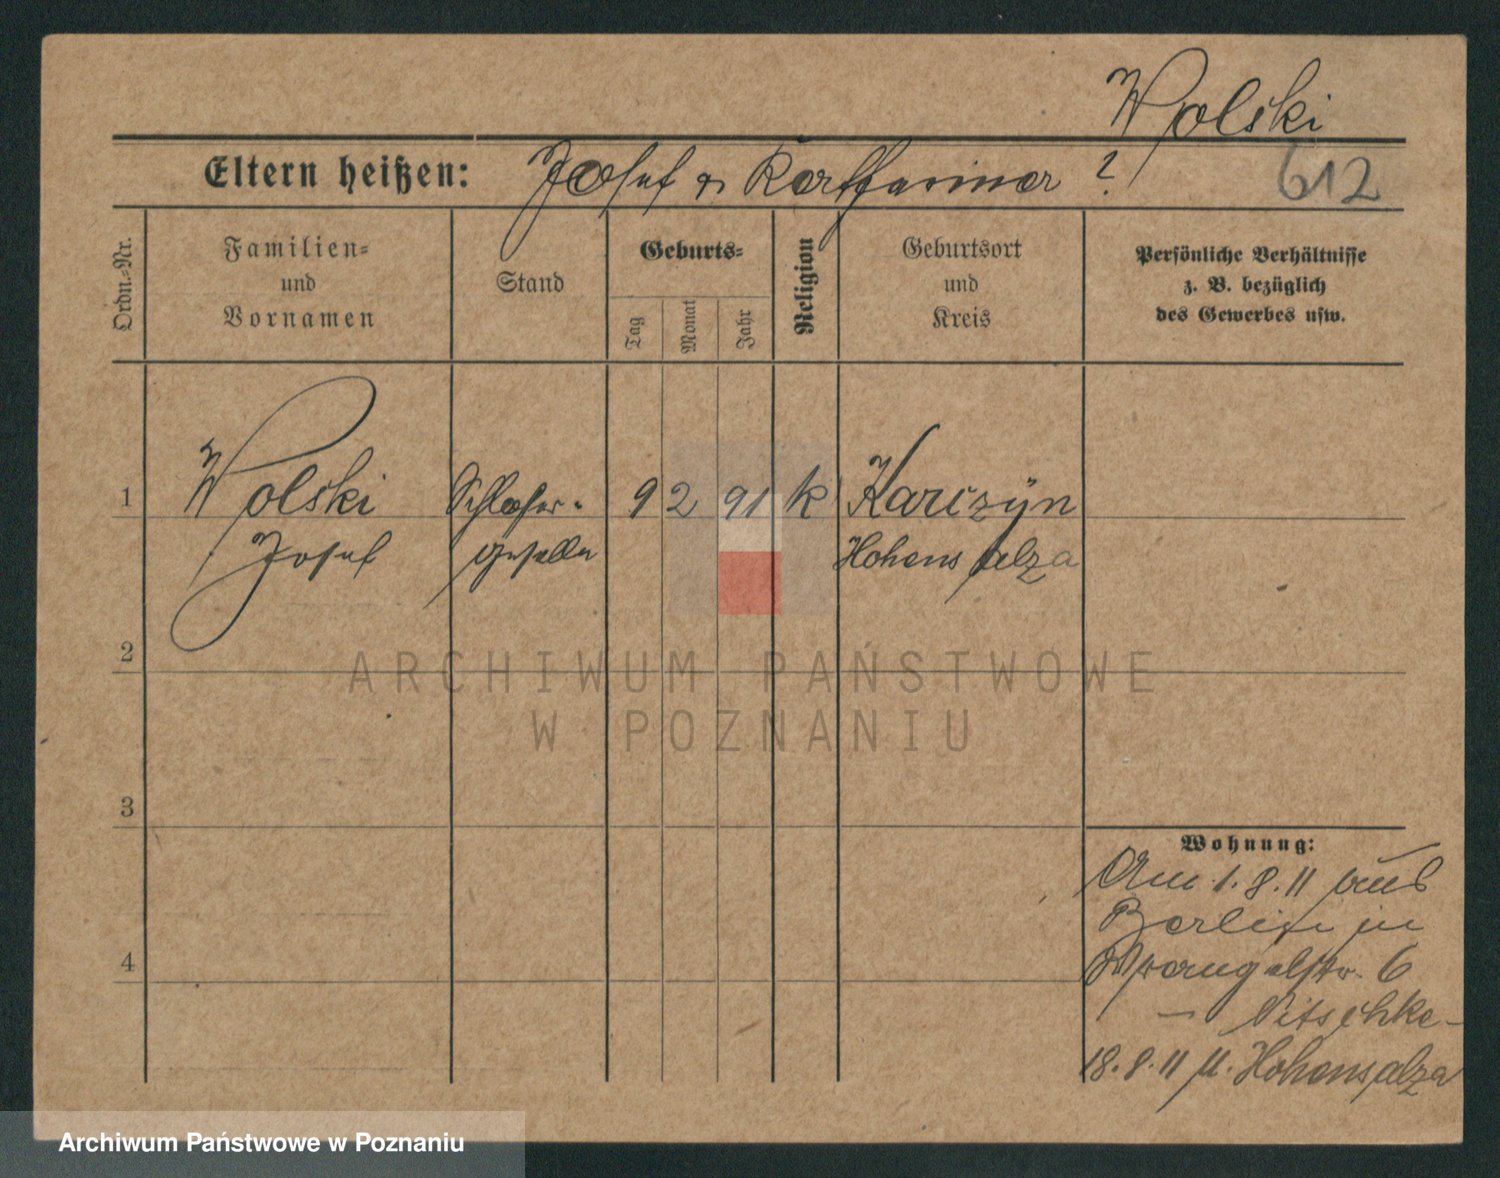 Wolski
Eltern heißen: Josef u Katharina ?
612
Ordn.-Nr.
Familien-
und
Vornamen
Stand
Geburts-
Tag
Monat
Jahr
Religion
Geburtsort
und
Kreis
Persönliche Verhältnisse
z. B. bezüglich
des Gewerbes usw.
1 Wolski Schlosser- 9 2 91 k Karczyn
Josef geselle Hohensalza
2
ARCHIWUM PAŃSTWOWE
W POZNANIU
3
Wohnung:
Am 1.8.11 aus
Berlin in
4 Wrangelstr. 6
– Nitschke –
18.8.11 n. Hohensalza
Archiwum Państwowe w Poznaniu